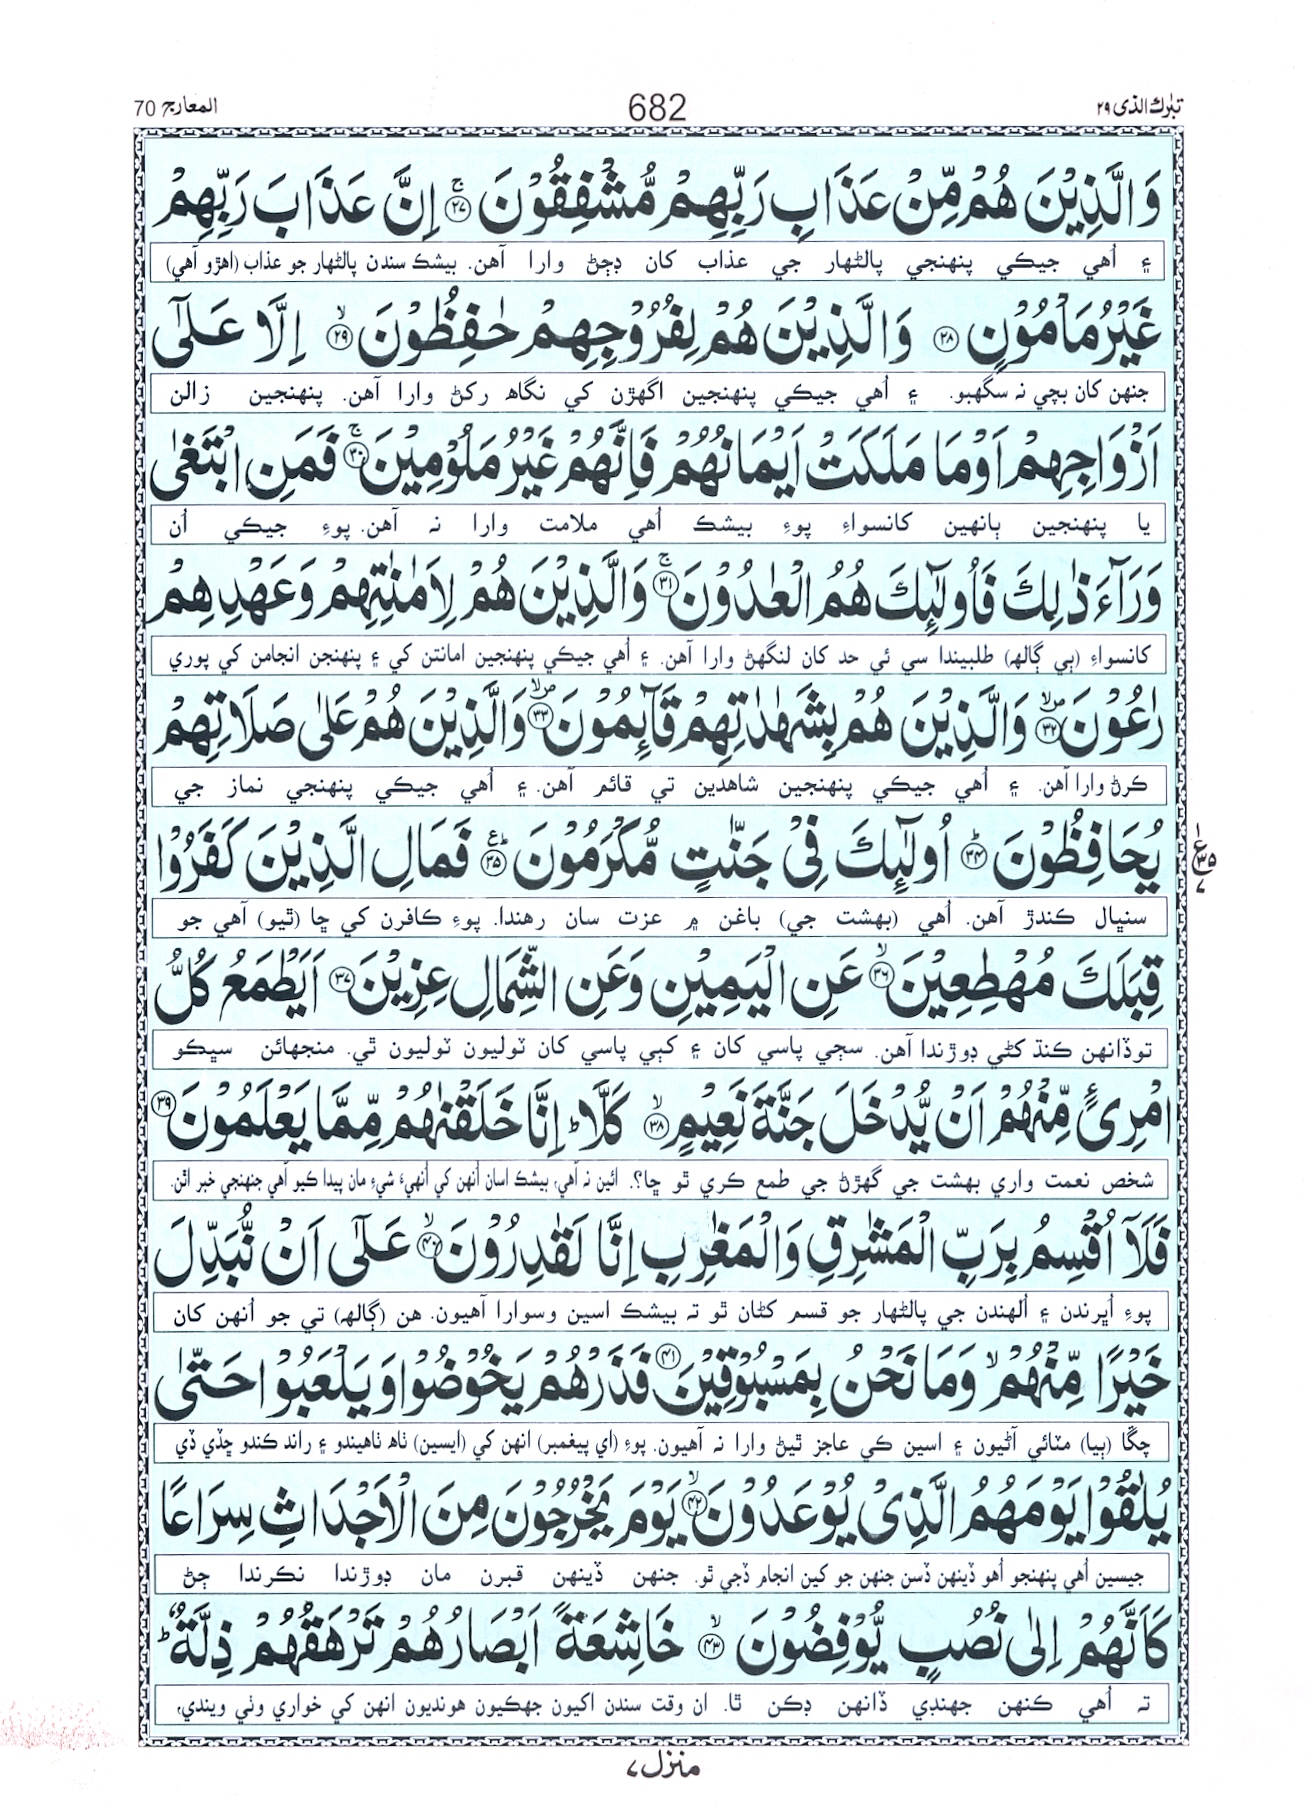 تبٰرك الذی ۲۹
682
المعارج 70
وَالَّذِيْنَ هُمْ مِّنْ عَذَابِ رَبِّهِمْ مُّشْفِقُوْنَ ۚ‏﴿۲۷﴾ اِنَّ عَذَابَ رَبِّهِمْ
۽ اُهي جيڪي پنهنجي پالڻهار جي عذاب کان ڊڄڻ وارا آهن. بيشڪ سندن پالڻهار جو عذاب (اهڙو آهي)
غَيْرُ مَاْمُوْنٍ ﴿۲۸﴾ وَالَّذِيْنَ هُمْ لِفُرُوْجِهِمْ حٰفِظُوْنَ ۙ﴿۲۹﴾ اِلَّا عَلٰٓى
جنهن کان بچي نہ سگهبو. ۽ اُهي جيڪي پنهنجين اگهڙن کي نگاھ رکڻ وارا آهن. پنهنجين زالن
اَزْوَاجِهِمْ اَوْ مَا مَلَكَتْ اَيْمَانُهُمْ فَاِنَّهُمْ غَيْرُ مَلُوْمِيْنَ ۚ﴿۳۰﴾ فَمَنِ ابْتَغٰى
يا پنهنجين ٻانهين کانسواءِ پوءِ بيشڪ اُهي ملامت وارا نہ آهن. پوءِ جيڪي اُن
وَرَآءَ ذٰلِكَ فَاُولٰٓئِكَ هُمُ الْعٰدُوْنَ ۚ﴿۳۱﴾ وَالَّذِيْنَ هُمْ لِاَمٰنٰتِهِمْ وَعَهْدِهِمْ
کانسواءِ (ٻي ڳالھ) طلبيندا سي ئي حد کان لنگهڻ وارا آهن. ۽ اُهي جيڪي پنهنجين امانتن کي ۽ پنهنجن انجامن کي پوري
رٰعُوْنَ ۙ﴿۳۲﴾ وَالَّذِيْنَ هُمْ بِشَهٰدٰتِهِمْ قَآئِمُوْنَ ۙ﴿۳۳﴾ وَالَّذِيْنَ هُمْ عَلٰى صَلَاتِهِمْ
ڪرڻ وارا آهن. ۽ اُهي جيڪي پنهنجين شاهدين تي قائم آهن. ۽ اُهي جيڪي پنهنجي نماز جي
يُحَافِظُوْنَ ؕ﴿۳۴﴾ اُولٰٓئِكَ فِىْ جَنّٰتٍ مُّكْرَمُوْنَ ؕ﴿۳۵﴾ فَمَالِ الَّذِيْنَ كَفَرُوْا
سنڀال ڪندڙ آهن. اُهي (بهشت جي) باغن ۾ عزت سان رهندا. پوءِ ڪافرن کي ڇا (ٿيو) آهي جو
قِبَلَكَ مُهْطِعِيْنَ ۙ﴿۳۶﴾ عَنِ الْيَمِيْنِ وَعَنِ الشِّمَالِ عِزِيْنَ ﴿۳۷﴾ اَيَطْمَعُ كُلُّ
توڏانهن ڪنڌ کڻي ڊوڙندا آهن. سڄي پاسي کان ۽ کٻي پاسي کان ٽوليون ٽوليون ٿي. منجهائن سڀڪو
امْرِئٍ مِّنْهُمْ اَنْ يُّدْخَلَ جَنَّةَ نَعِيْمٍ ۙ﴿۳۸﴾ كَلَّا ؕ اِنَّا خَلَقْنٰهُمْ مِّمَّا يَعْلَمُوْنَ ﴿۳۹﴾
شخص نعمت واري بهشت جي گهڙڻ جي طمع ڪري ٿو ڇا؟. ائين نہ آهي، بيشڪ اسان اُنهن کي اُنهيءَ شيءِ مان پيدا ڪيو آهي جنهنجي خبر اٿن.
فَلَآ اُقْسِمُ بِرَبِّ الْمَشٰرِقِ وَالْمَغٰرِبِ اِنَّا لَقٰدِرُوْنَ ۙ﴿۴۰﴾ عَلٰٓى اَنْ نُّبَدِّلَ
پوءِ اُڀرندن ۽ اُلهندن جي پالڻهار جو قسم کڻان ٿو تہ بيشڪ اسين وسوارا آهيون. هن (ڳالھ) تي جو اُنهن کان
خَيْرًا مِّنْهُمْ ۙ وَمَا نَحْنُ بِمَسْبُوْقِيْنَ ﴿۴۱﴾ فَذَرْهُمْ يَخُوْضُوْا وَيَلْعَبُوْا حَتّٰى
چڱا (ٻيا) مٽائي آڻيون ۽ اسين ڪي عاجز ٿيڻ وارا نہ آهيون. پوءِ (اي پيغمبر) انهن کي (ايسين) ٺاھ ٺاهيندو ۽ راند ڪندو ڇڏي ڏي
يُلٰقُوْا يَوْمَهُمُ الَّذِىْ يُوْعَدُوْنَ ۙ﴿۴۲﴾ يَوْمَ يَخْرُجُوْنَ مِنَ الْاَجْدَاثِ سِرَاعًا
جيسين اُهي پنهنجو اُهو ڏينهن ڏسن جنهن جو کين انجام ڏجي ٿو. جنهن ڏينهن قبرن مان ڊوڙندا نڪرندا ڄڻ
كَاَنَّهُمْ اِلٰى نُصُبٍ يُّوْفِضُوْنَ ۙ﴿۴۳﴾ خَاشِعَةً اَبْصَارُهُمْ تَرْهَقُهُمْ ذِلَّةٌ ؕ
تہ اُهي ڪنهن جهنڊي ڏانهن ڊڪن ٿا. ان وقت سندن اکيون جهڪيون هونديون انهن کي خواري وٺي ويندي،
منزل ۷